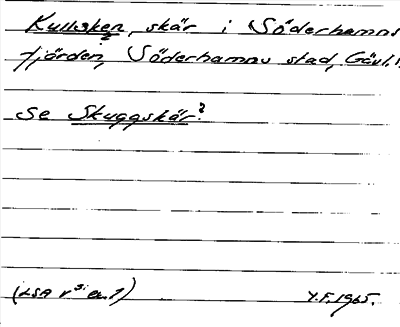 Kullisken, skär i Söderhamns
fjärden, Söderhamns stad, Gävl.l.
Se Skuggskär?
(LSA
Y.F. 1965.